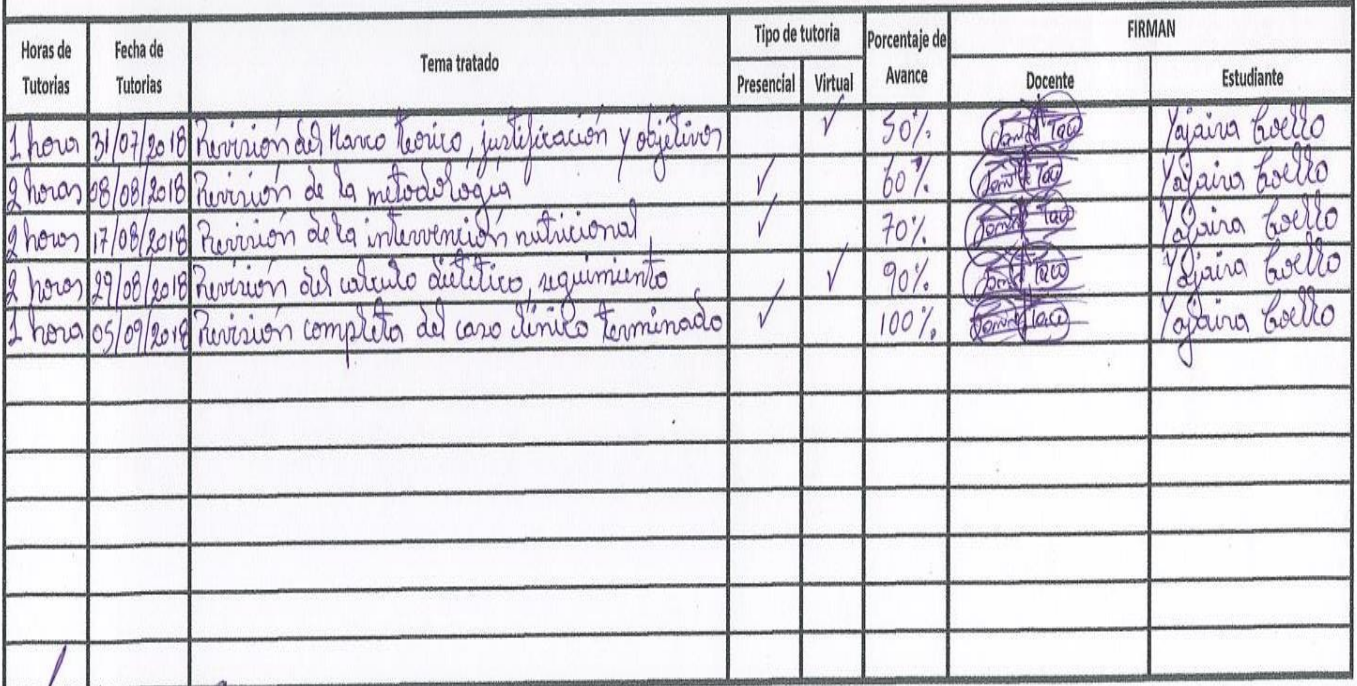 Horas de Tutorias Fecha de Tutorias Tema tratado Tipo de tutoria Porcentaje de Avance FIRMAN
Presencial Virtual Docente Estudiante
1 hora 31/07/2018 Revisión del Marco teórico, justificación y objetivos ✓ 50% Yajaira Coello
2 horas 08/08/2018 Revisión de la metodología ✓ 60% Yajaira Coello
2 horas 17/08/2018 Revisión de la intervención nutricional ✓ 70% Yajaira Coello
2 horas 29/08/2018 Revisión del calculo dietético, seguimiento ✓ 90% Yajaira Coello
1 hora 05/09/2018 Revisión completa del caso clínico terminado ✓ 100% Yajaira Coello